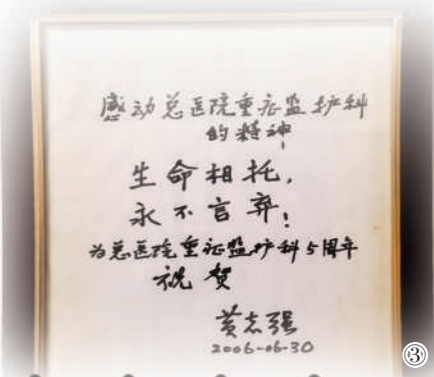 感动总医院重症监护科
的精神
生命相托，
永不言弃！
为总医院重症监护科5周年
祝贺
黄志强
2006-06-30
③